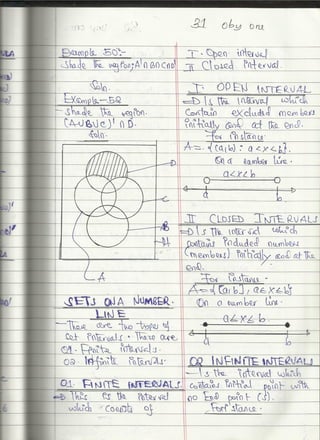 31 Oby one
Example 50:-
Shade the region; A' ∩ B ∩ C ∩ D'
Soln.
Example - 52
- Shade the region.
(A ∪ B ∪ C)' ∩ D.
Soln.
D
C
B
A
SETS ON A NUMBER
LINE
- There are two types of
set intervals. There are
01. Finite intervals.
02 Infinite intervals.
01. FINITE INTERVALS
⇒ This is the interval
which consists of
I. Open interval
II Closed interval.
I. OPEN INTERVAL
⇒ Is the interval which
contain excluded members
initially and at the end.
For instance
A = {(a,b) : a < x < b}.
On a number line.
a < x < b
a b
II CLOSED INTERVALS
⇒ Is the interval which
contains included numbers
(members) initially and at the
end.
For instance
A = {[a,b], a ≤ x ≤ b}
On a number line.
a ≤ x ≤ b
a b
02 INFINITE INTERVALS
- Is the interval which
contains initial point with
no end point (s).
For instance.